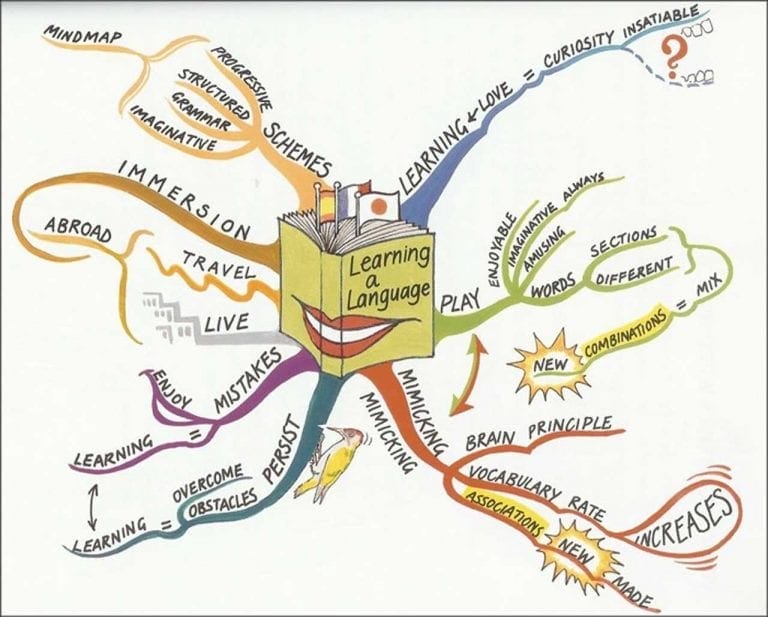 Learning
a
Language
LEARNING ← LOVE = CURIOSITY INSATIABLE
?
PLAY
ENJOYABLE
IMAGINATIVE ALWAYS
AMUSING
WORDS
SECTIONS
DIFFERENT
MIX
=
COMBINATIONS
NEW
MIMICKING
MIMICKING
BRAIN PRINCIPLE
VOCABULARY RATE
INCREASES
ASSOCIATIONS
NEW
MADE
PERSIST
OVERCOME
OBSTACLES
=
LEARNING
MISTAKES
ENJOY
=
LEARNING
LIVE
TRAVEL
ABROAD
IMMERSION
SCHEMES
PROGRESSIVE
STRUCTURED
GRAMMAR
IMAGINATIVE
MINDMAP